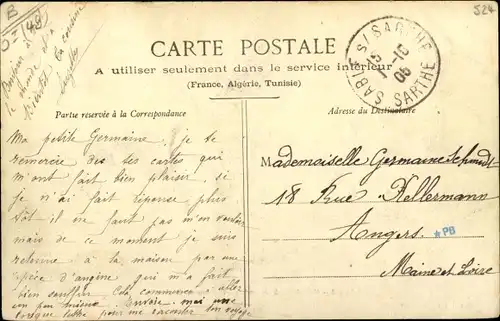 B
0= (48)
524
Bonjour à
le monde et à
bientôt ta cousine
CARTE POSTALE
A utiliser seulement dans le service intérieur
(France, Algérie, Tunisie)
SABLÉ-S-SARTHE
1-10
05
SARTHE
Partie réservée à la Correspondance
Adresse du Destinataire
Ma petite Germaine, je te
remercie des tes cartes qui
m'ont fait bien plaisir si
je n'ai fait réponse plus
tôt il ne faut pas m'en vouloir
mais de ce moment je suis
retenue à la maison par une
espèce d'angine qui m'a fait
bien souffrir Cela commence à aller
un peu mieux Envoie moi une
longue lettre pour me raconter ton voyage
Mademoiselle Germaine Schmidt
18 Rue Kellermann
Angers
*PB
Maine et Loire